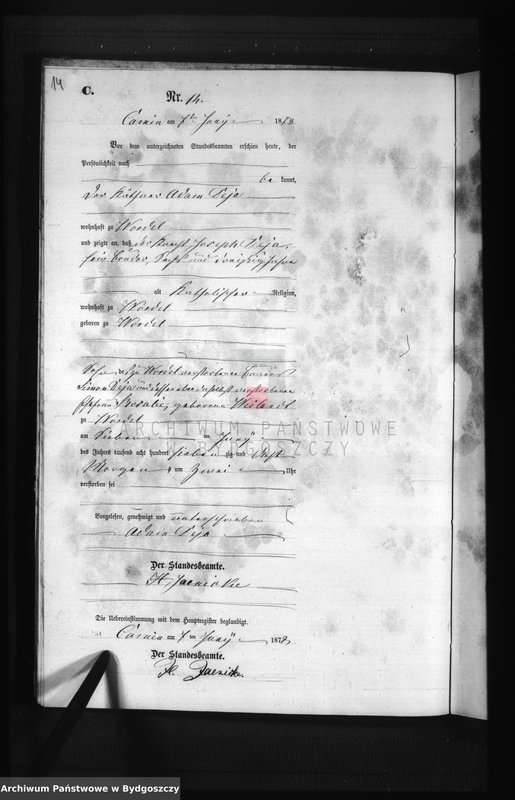 14
C.
Nr. 14.
Camin am 7ten Juny 1878
Vor dem unterzeichneten Standesbeamten erschien heute, der
Persönlichkeit nach
be kannt,
der Käthner Adam
wohnhaft zu Wordel
und zeigte an, daß der Knecht Joseph
sein Bruder, sechs und dreißig Jahre
alt Katholischer Religion,
wohnhaft zu Wordel
geboren zu Wordel
Sohn des zu Wordel verstorbenen
Simon und dessen daselbst verstorbenen
Ehefrau Rosalie, geborenen
zu Wordel
am sieben ten Juny
des Jahres tausend acht hundert sieben zig und acht
Morgen s um zwei Uhr
verstorben sei
Vorgelesen, genehmigt und unterschrieben
Adam
Der Standesbeamte.
H. Jaenicke
Die Uebereinstimmung mit dem Hauptregister beglaubigt.
Camin am 7ten Juny 1878
Der Standesbeamte.
H. Jaenicke
ARCHIWUM PAŃSTWOWE
W BYDGOSZCZY
Archiwum Państwowe w Bydgoszczy